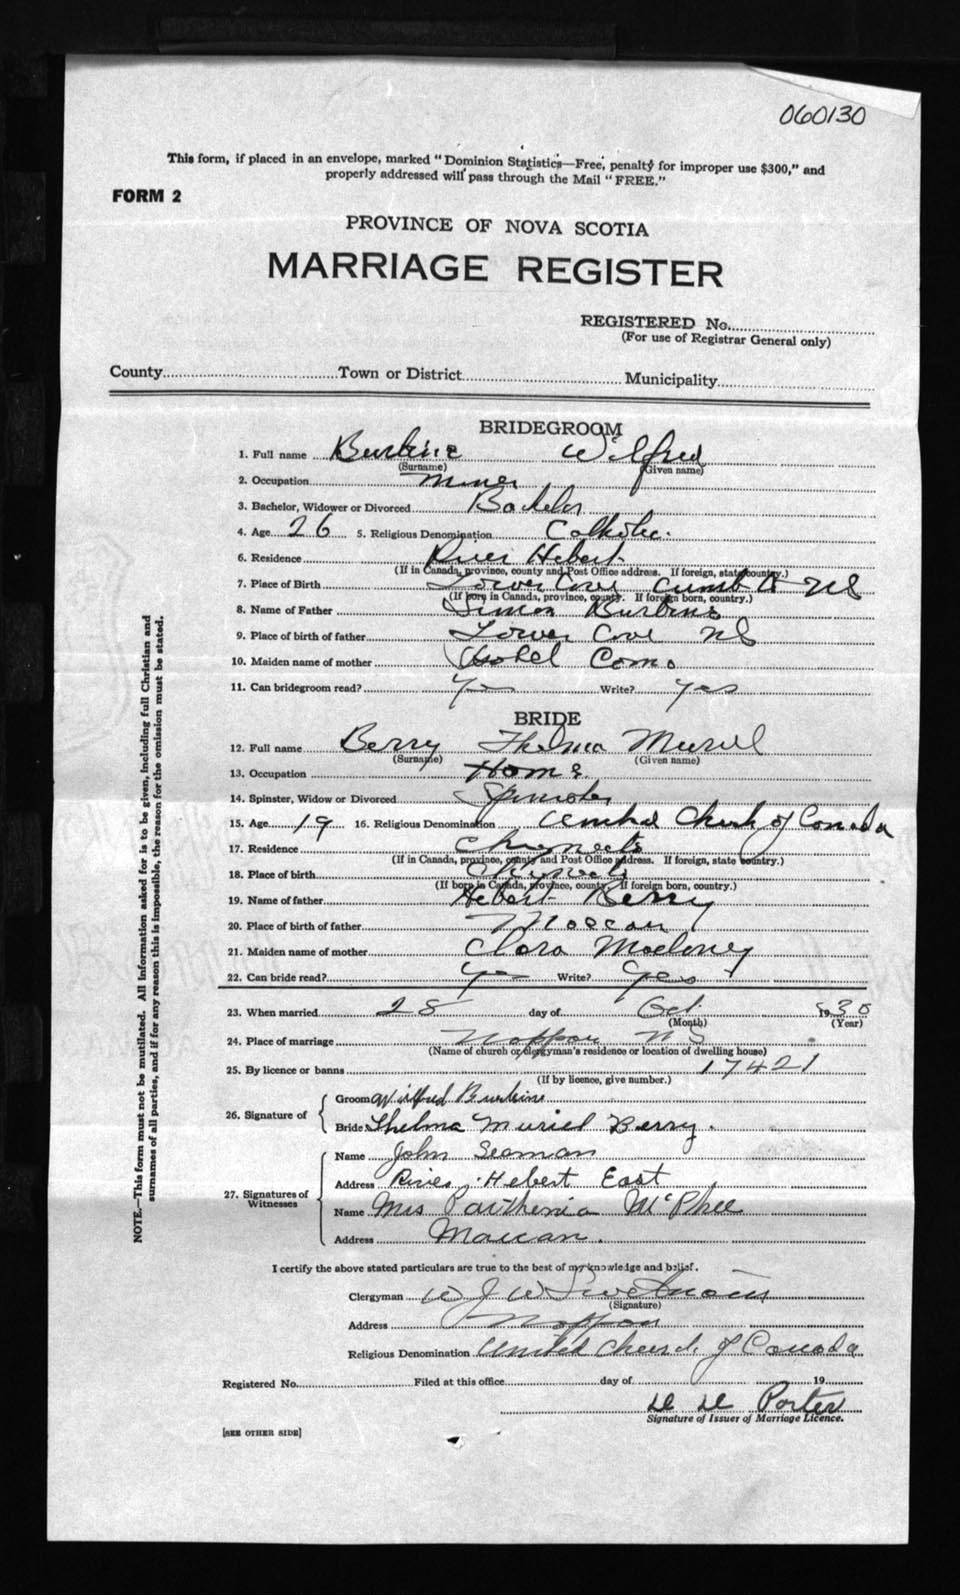 060130
This form, if placed in an envelope, marked "Dominion Statistics—Free, penalty for improper use $300," and
properly addressed will pass through the Mail "FREE."
FORM 2
PROVINCE OF NOVA SCOTIA
MARRIAGE REGISTER
REGISTERED No.
(For use of Registrar General only)
County Town or District Municipality
BRIDEGROOM
1. Full name Burbine Wilfred
(Surname) (Given name)
2. Occupation miner
3. Bachelor, Widower or Divorced Bachelor
4. Age 26 5. Religious Denomination Catholic.
6. Residence River Hebert
(If in Canada, province, county and Post Office address. If foreign, state country.)
7. Place of Birth Lower Cove Cumb Co NS
(If born in Canada, province, county. If foreign born, country.)
8. Name of Father Simon Burbine
9. Place of birth of father Lower Cove NS
10. Maiden name of mother Como
11. Can bridegroom read? Yes Write? Yes
BRIDE
12. Full name Berry Thelma Muriel
(Surname) (Given name)
13. Occupation Home
14. Spinster, Widow or Divorced Spinster
15. Age 19 16. Religious Denomination United Church of Canada
17. Residence Chignecto
(If in Canada, province, county and Post Office address. If foreign, state country.)
18. Place of birth Chignecto
(If born in Canada, province, county. If foreign born, country.)
19. Name of father Hebert Berry
20. Place of birth of father Maccan
21. Maiden name of mother Clara Maloney
22. Can bride read? Yes Write? Yes
23. When married 28 day of Oct 1930
(Month) (Year)
24. Place of marriage Nappan NS
(Name of church or clergyman's residence or location of dwelling house)
25. By licence or banns 17421
(If by licence, give number.)
26. Signature of Groom Wilfred Burbine
Bride Thelma Muriel Berry.
27. Signatures of Witnesses
Name John Seaman
Address River Hebert East
Name Mrs Parthenia McPhee
Address Maccan.
I certify the above stated particulars are true to the best of my knowledge and belief.
Clergyman W J W
(Signature)
Address Nappan
Religious Denomination United Church of Canada
Registered No. Filed at this office day of 19
Porter
Signature of Issuer of Marriage Licence.
[SEE OTHER SIDE]
NOTE.—This form must not be mutilated. All information asked for is to be given, including full Christian and
surnames of all parties, and if for any reason this is impossible, the reason for the omission must be stated.